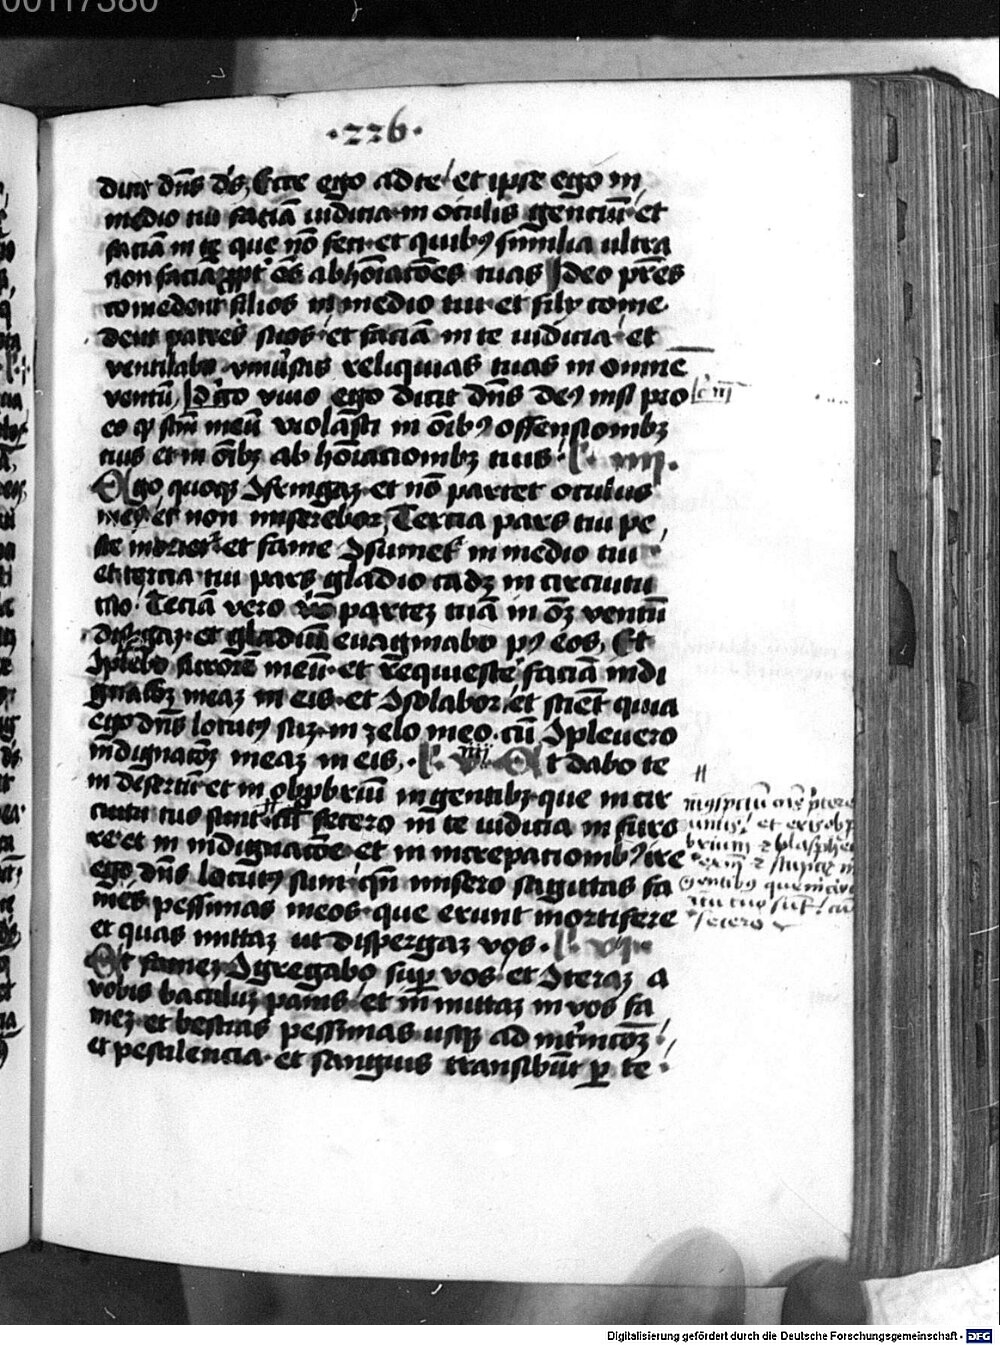 00117380
·226·
dicit dñs ds, Ecce ego ad te et ipse ego in
medio tui faciā iudicia in oculis gentiū et
faciā in te que nō feci et quibꝰ similia ultra
non faciaꝫ ꝓpt̕ oēs abhoīatōes tuas Ideo pr̄es
comedent filios in medio tui et filij come
dent patres suos et faciā in te iudicia et
ventilabo vniūsas reliquias tuas in omnē
ventū, Idc̄o viuo ego dicit dñs deꝰ nisi pro
eo qꝫ scm̄ meū violasti in oībꝰ offensionibꝫ
tuis et in oībꝫ abhoīationibꝫ tuis
Ego quoqꝫ ꝯfringaꝫ et nō parcet oculus
meꝰ et non miserebor, Tercia pars tui pe
ste moriet̕ et fame ꝯsumet̕ in medio tui
et tercia tui pars gladio cadꝫ in circuitu
tuo Terciā vero parteꝫ tuā in oꝫ ventū
dispgaꝫ et gladiū euaginabo pꝰ eos, Et
ꝯplebo furorē meū et requiescē faciā indi
gnatōꝫ meaꝫ in eis et ꝯsolabor et sciēt quia
ego dñs locutꝰ suꝫ in zelo meo cū ꝯpleuero
indignatōꝫ meaꝫ in eis, Et dabo te
in desertū et in obpbriū in gentibꝫ que in cir
cuitu tuo sunt cū fecero in te iudicia in furo
re et in indignatōe et in increpationibꝰ ire
ego dñs locutꝰ sum qn̄ misero sagittas fa
mis pessimas meos que erunt mortifere
et quas mittaꝫ ut dispergaꝫ vos
Et fameꝫ ꝯgregabo sup vos et ꝯteraꝫ a
vobis baculuꝫ panis et im̄ittaꝫ in vos fa
meꝫ et bestias pessimas usqꝫ ad int̕nitōꝫ
et pestilencia et sanguis transibūt ꝑ te
in ꝯspectu ois ptere
untis et eris obp
brium ⁊ blasphe
⁊ stupor in
gentibꝰ que in circu
itu tuo sūt cū
fecero
Digitalisierung gefördert durch die Deutsche Forschungsgemeinschaft - DFG